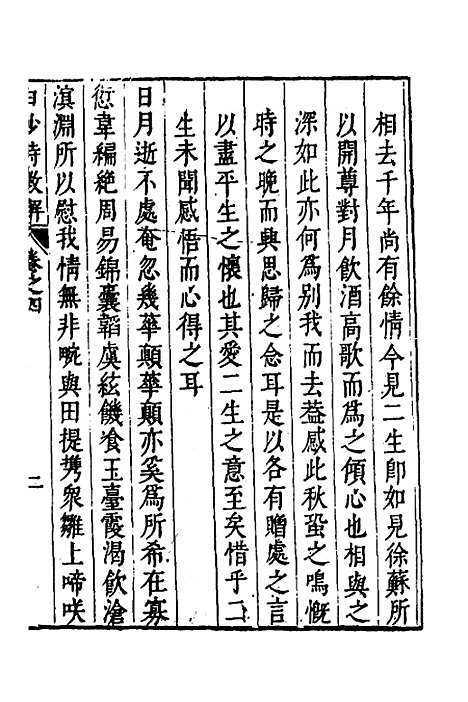 相去千年尚有餘情今見二生卽如見徐蘇所
以開尊對月飲酒高歌而爲之傾心也相與之
深如此亦何爲別我而去葢感此秋蛩之鳴慨
時之晚而興思歸之念耳是以各有贈處之言
以盡平生之懷也其愛二生之意至矣惜乎二
生未聞感悟而心得之耳
日月逝不處奄忽幾華顛華顛亦奚爲所希在寡
愆韋編絶周易錦囊韜虞絃饑飡玉臺霞渴飲滄
滇淵所以慰我情無非畹與田提攜衆雛上啼咲
白沙詩教解
卷之四
二